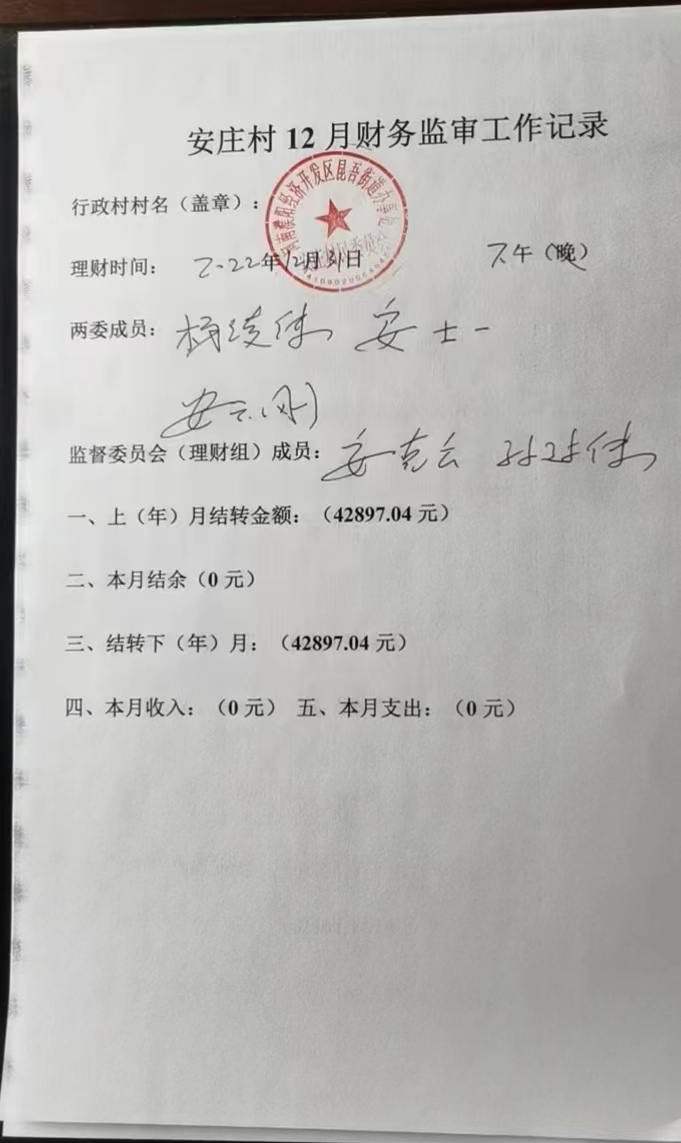 安庄村 12 月财务监审工作记录
行政村村名（盖章）：
河南濮阳经济开发区昆吾街道办事处
理财时间： 2022年12月31日 下午（晚）
两委成员： 安士一
监督委员会（理财组）成员： 安克云
一、上（年）月结转金额：（42897.04 元）
二、本月结余（0 元）
三、结转下（年）月：（42897.04 元）
四、本月收入：（0 元） 五、本月支出：（0 元）